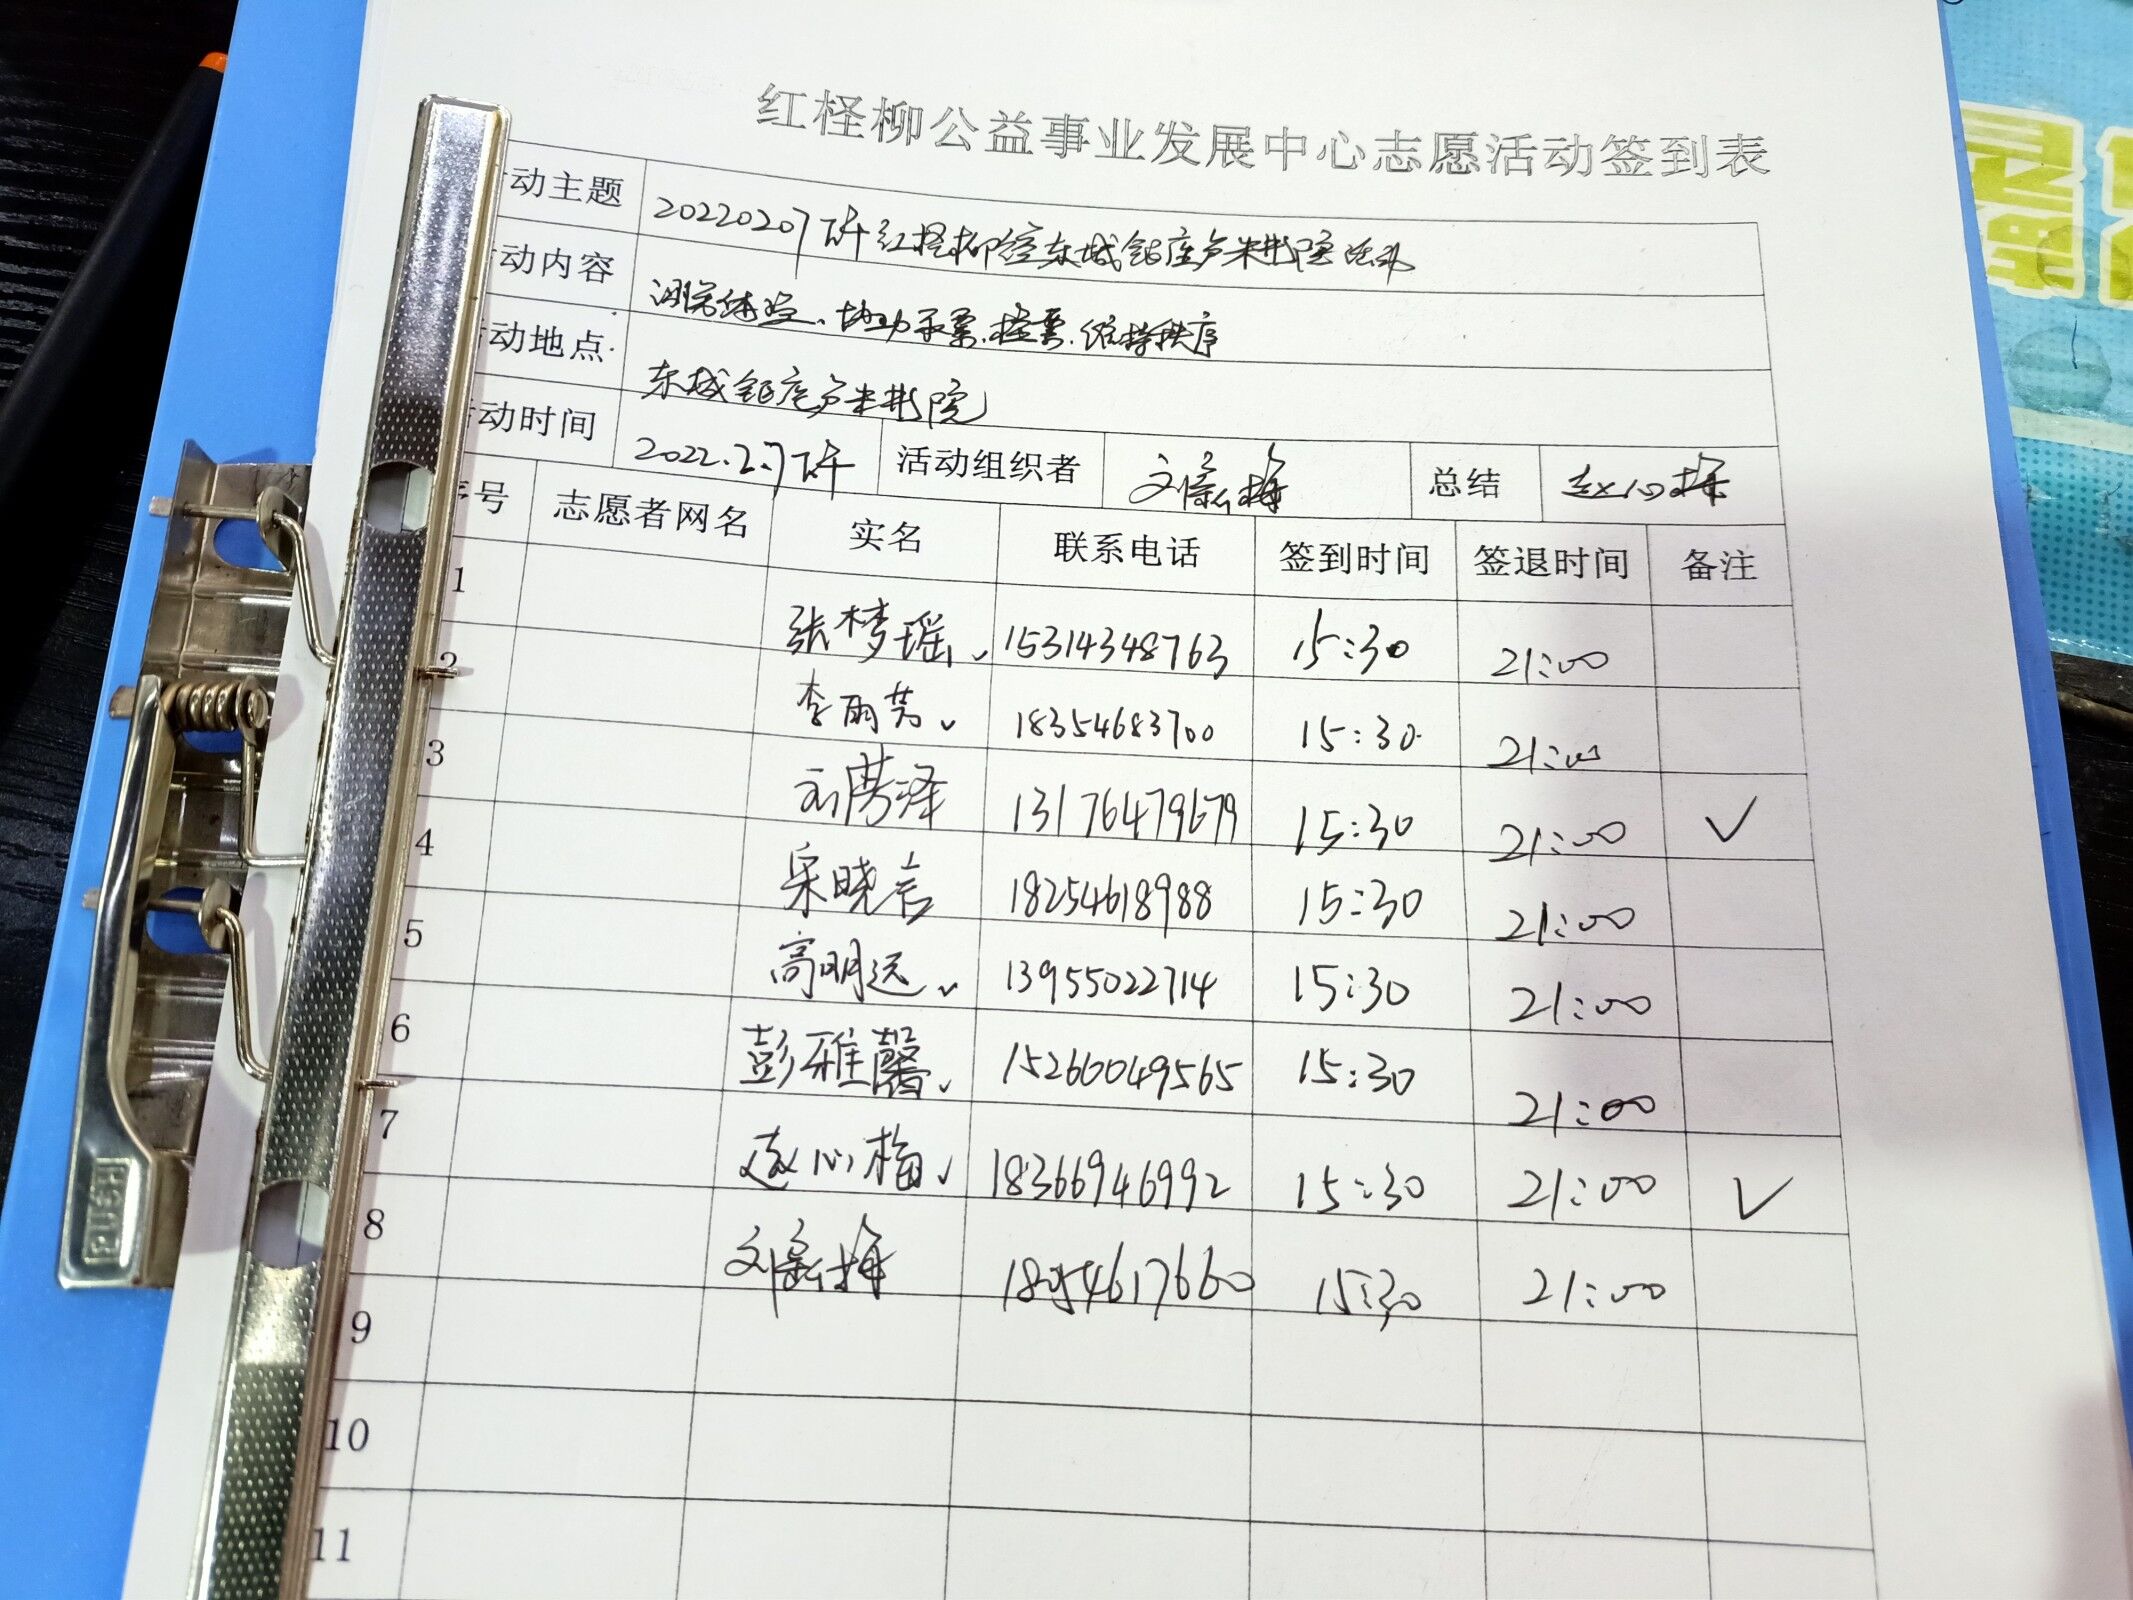 红柽柳公益事业发展中心志愿活动签到表
动主题 20220207下午红柽柳馆东城银座卢米影院活动
动内容 测量体温、协助取票、检票、维持秩序
动地点 东城银座卢米影院
动时间 2022.2.7下午 活动组织者 刘俊梅 总结 赵心梅
号 志愿者网名 实名 联系电话 签到时间 签退时间 备注
1 张梦瑶✓ 15314348763 15:30 21:00
2 李雨芳✓ 18354683700 15:30 21:00
3 刘芳泽 13176479679 15:30 21:00 ✓
4 宋晓言 18254618988 15:30 21:00
5 高明远✓ 13955022714 15:30 21:00
6 彭雅馨✓ 15266049565 15:30 21:00
7 赵心梅✓ 18366946992 15:30 21:00 ✓
8 15:30 21:00
9
10
11